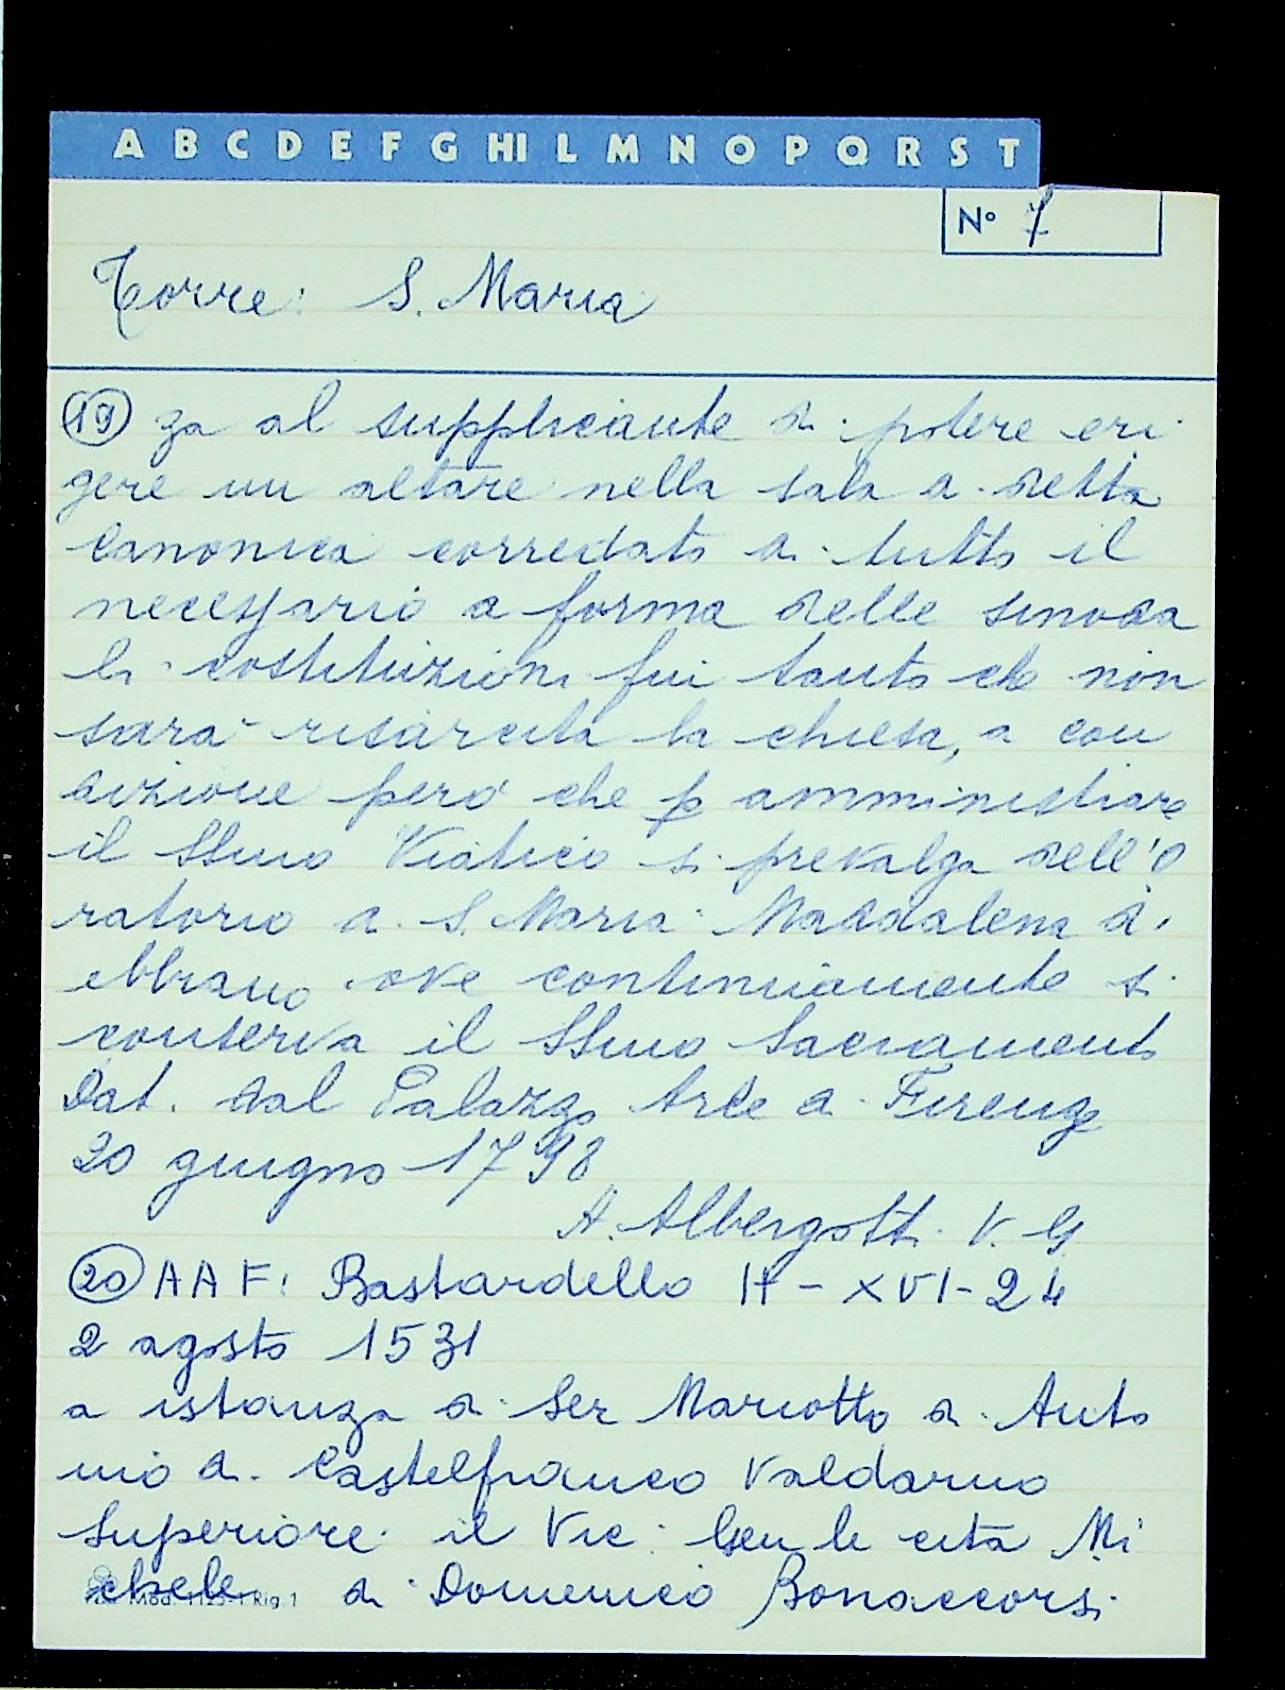 A B C D E F G HI L M N O P Q R S T
N° 7
Torre: S. Maria
19 za al suppliciante di potere eri
gere un altare nella sala di detta
Canonica corredato di tutto il
necessario a forma delle sinoda
li costituzioni fui tanto che non
sarà risarcita la chiesa, a con
dizione però che p amministrare
il SSmo Viatico si prevalga dell'O
ratorio di S. Maria Maddalena di
ebbiano ove continuamente si
conserva il SSmo Sacramento
Dat. dal Palazzo Arle di Firenze
20 giugno 1798
A. Albergotti V. G.
20 AAF: Bastardello II - XVI - 24
2 agosto 1531
a istanza di Ser Mariotto di Anto
nio di Castelfranco Valdarno
Superiore il Vic: Gen le cita Mi
chele di Domenico Bonaccorsi
Rig. 1